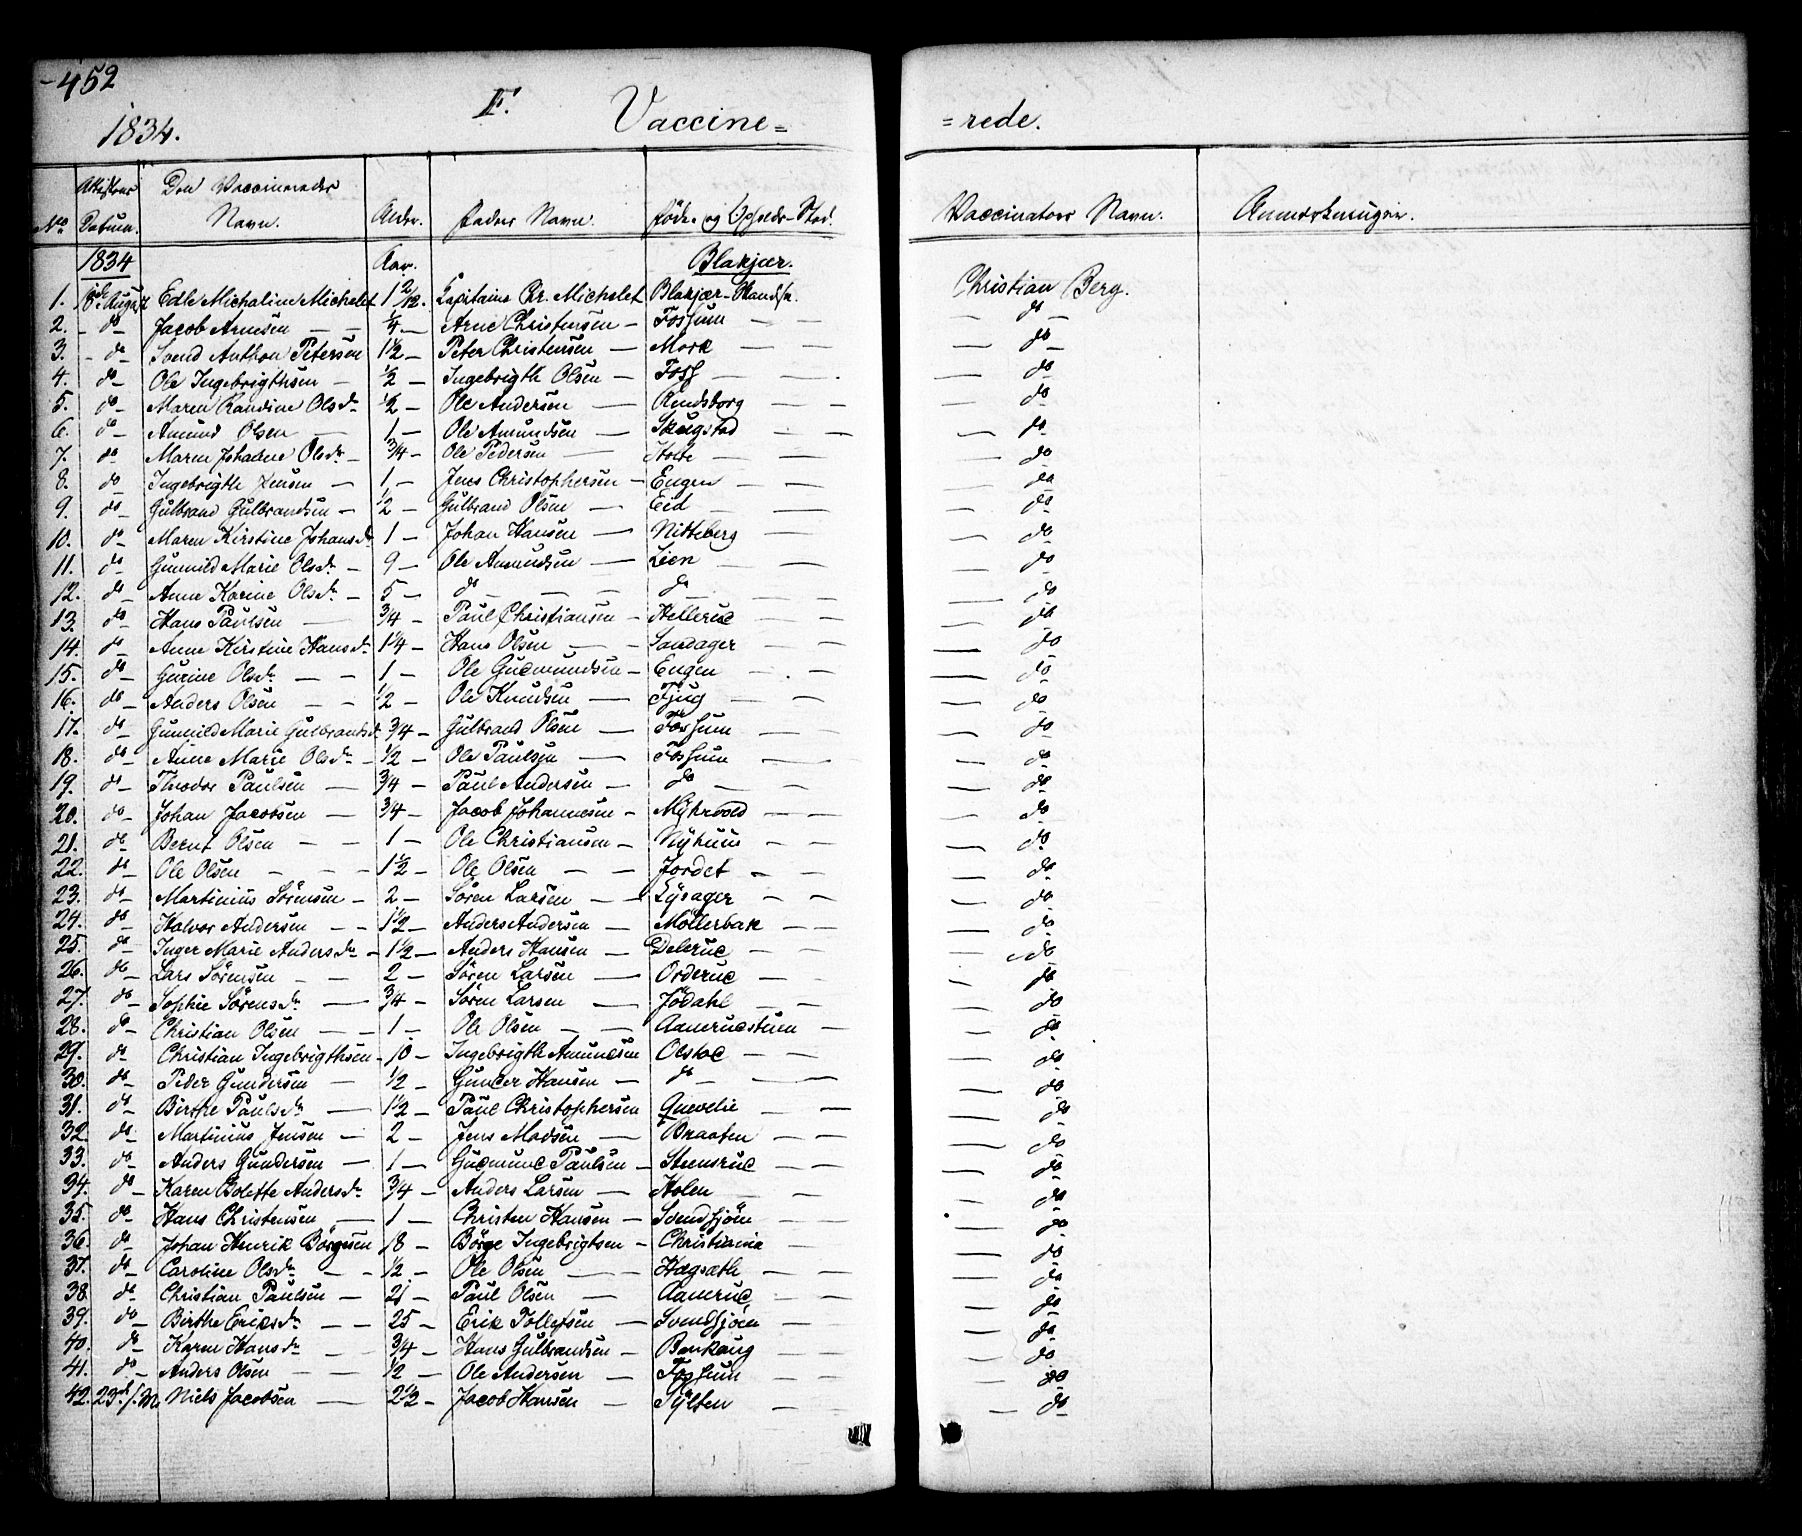 452
1834. F. Vaccine= =rede.
No Attestens Datum. Den Vaccineredes Navn. Alder. Faders Navn. Føde- og Opholds-Sted. Vaccinators Navn. Anmærkninger.
1834 Aar. Blakjær.
1. 18de August Edle Micheline Michelet 1 2/12. Capitaine Chr. Michelet Blakjær-Skands. Christian Berg.
2. - do Jacob Arnesen — — 1/4 — Arne Christensen — Fossum — — — do —
3. - do Svend Anthon Petersen 1 1/2 — Peter Christensen — Mork — — — do
4. do — Ole Ingebrigthsen — 1/2 — Ingebrigth Olsen — Foss — — — do
5. do — Maren Randine Olsdr 1/2 — Ole Andersen — Rendsborg — — — do
6. do — Amund Olsen — 1 — Ole Amundsen — Skugstad — — — do
7. do Maren Johanne Olsdr — 3/4 — Ole Pedersen — — — — do
8. do Ingebrigth Jensen — 1 — Jens Christophersen — Engen — — — do
9. do — Gulbrand Gulbrandsen — 1/2 — Gulbrand Olsen — Eid — — — do
10. do Maren Kirstine Johansdr 1 — Johan Hansen — Nitteberg — — — do
11. do — Gunnild Marie Olsdr — 9 — Ole Amundsen — Lien — — — do
12. do — Anne Karine Olsdr — 5 — do — — — do — — — do
13. do — Hans Paulsen — 3/4 — Paul Christiansen — Hellerud — — — do
14. do — Anne Kirstine Hansdr 1 1/4 — Hans Olsen — — Sandager — — — do
15. do — Gurine Olsdr — — 1 — Ole Gudmundsen — Engen — — — do
16. do — Anders Olsen — — 1/2 — Ole Knudsen — Tjug — — — do
17. do — Gunnild Marie Gulbrandsdr 3/4 — Gulbrand Olsen — Fossum — — — do
18. do — Anne Marie Olsdr — 1/2 — Ole Paulsen — Fossum — — do
19. do — Theodor Paulsen — 3/4 — Paul Andersen — do — — — do
20. do — Johan Jacobsen — 3/4 — Jacob Johannesen — Myhrvold — — — do
21. do — Bernt Olsen — — 1 — Ole Christiansen — Nyhuus — — — do
22. do — Ole Olsen — — — 1 1/2 — Ole Olsen — — Jordet — — — do
23. do — Martinius Sörensen — 2 — Sören Larsen — — Lysager — — — do
24. do — Halvor Andersen — — 1 1/2 — Anders Andersen — Möllerbak — — — do
25. do — Inger Marie Andersdr — 1 1/2 — Anders Hansen — Delerud — — — do
26. do — Lars Sörensen — 2 — Sören Larsen — Orderud — — — do
27. do — Sophie Sörensdr — 3/4 — Sören Larsen — Jödahl — — — do
28. do — Christian Olsen — — 1 — Ole Olsen — — Aanerudstuen — — do
29. do Christian Ingebrigthsen — 10 — Ingebrigth Amundsen Olstad — — — do
30. do — Peder Gundersen — 1/2 — Gunder Hansen — do — — — do
31. do — Birthe Paulsdr — 1 1/2 — Paul Christophersen — — — do
32. do — Martinius Jensen — 2 — Jens Madsen — Braaten — — — do
33. do — Anders Gundersen — 1 — Gudmund Paulsen — Steensrud — — — do
34. do — Karen Bolette Andersdr 3/4 — Anders Larsen — Holen — — — do
35. do — Hans Christensen — 1 — Christen Hansen — Svendsjöen — — — do
36. do — Johan Henrik Börgesen 18 — Börge Ingebrigtsen — Christiania — — do
37. do — Caroline Olsdr — — 1/2 — Ole Olsen — — Hagsæth — — — do
38 do — Christian Paulsen — 21 — Paul Olsen — Aanerud — — — do
39. do — Birthe Eriksdr — — 25 — Erik Tollefsen — Svendsjöen — — do
40. do — Karen Hansdr — 3/4 — Hans Gulbrandsen — Bankaug — — — do
41. do — Anders Olsen — 1/2 — Ole Andersen — Fossum — — — do
42. 23de s. M. Niels Jacobsen — 2 1/2 — Jacob Hansen — Sylten — — — do